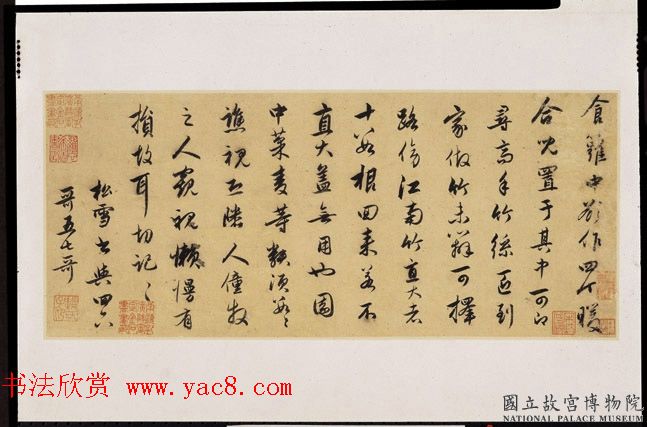 倉雞中欲作四个暖
合也置于其中可即
尋高手竹絲匠到
家做竹未辦可擇
路傍江南竹直大者
十數根回來若不
直大蓋無用也園
中菜麦等頻須數々
譙視左隣人僮牧
之人窺視懶慢有
損故耳切記々
松雪書與四六
哥五七哥
书法欣赏 www.yac8.com
國立故宮博物院
NATIONAL PALACE MUSEUM